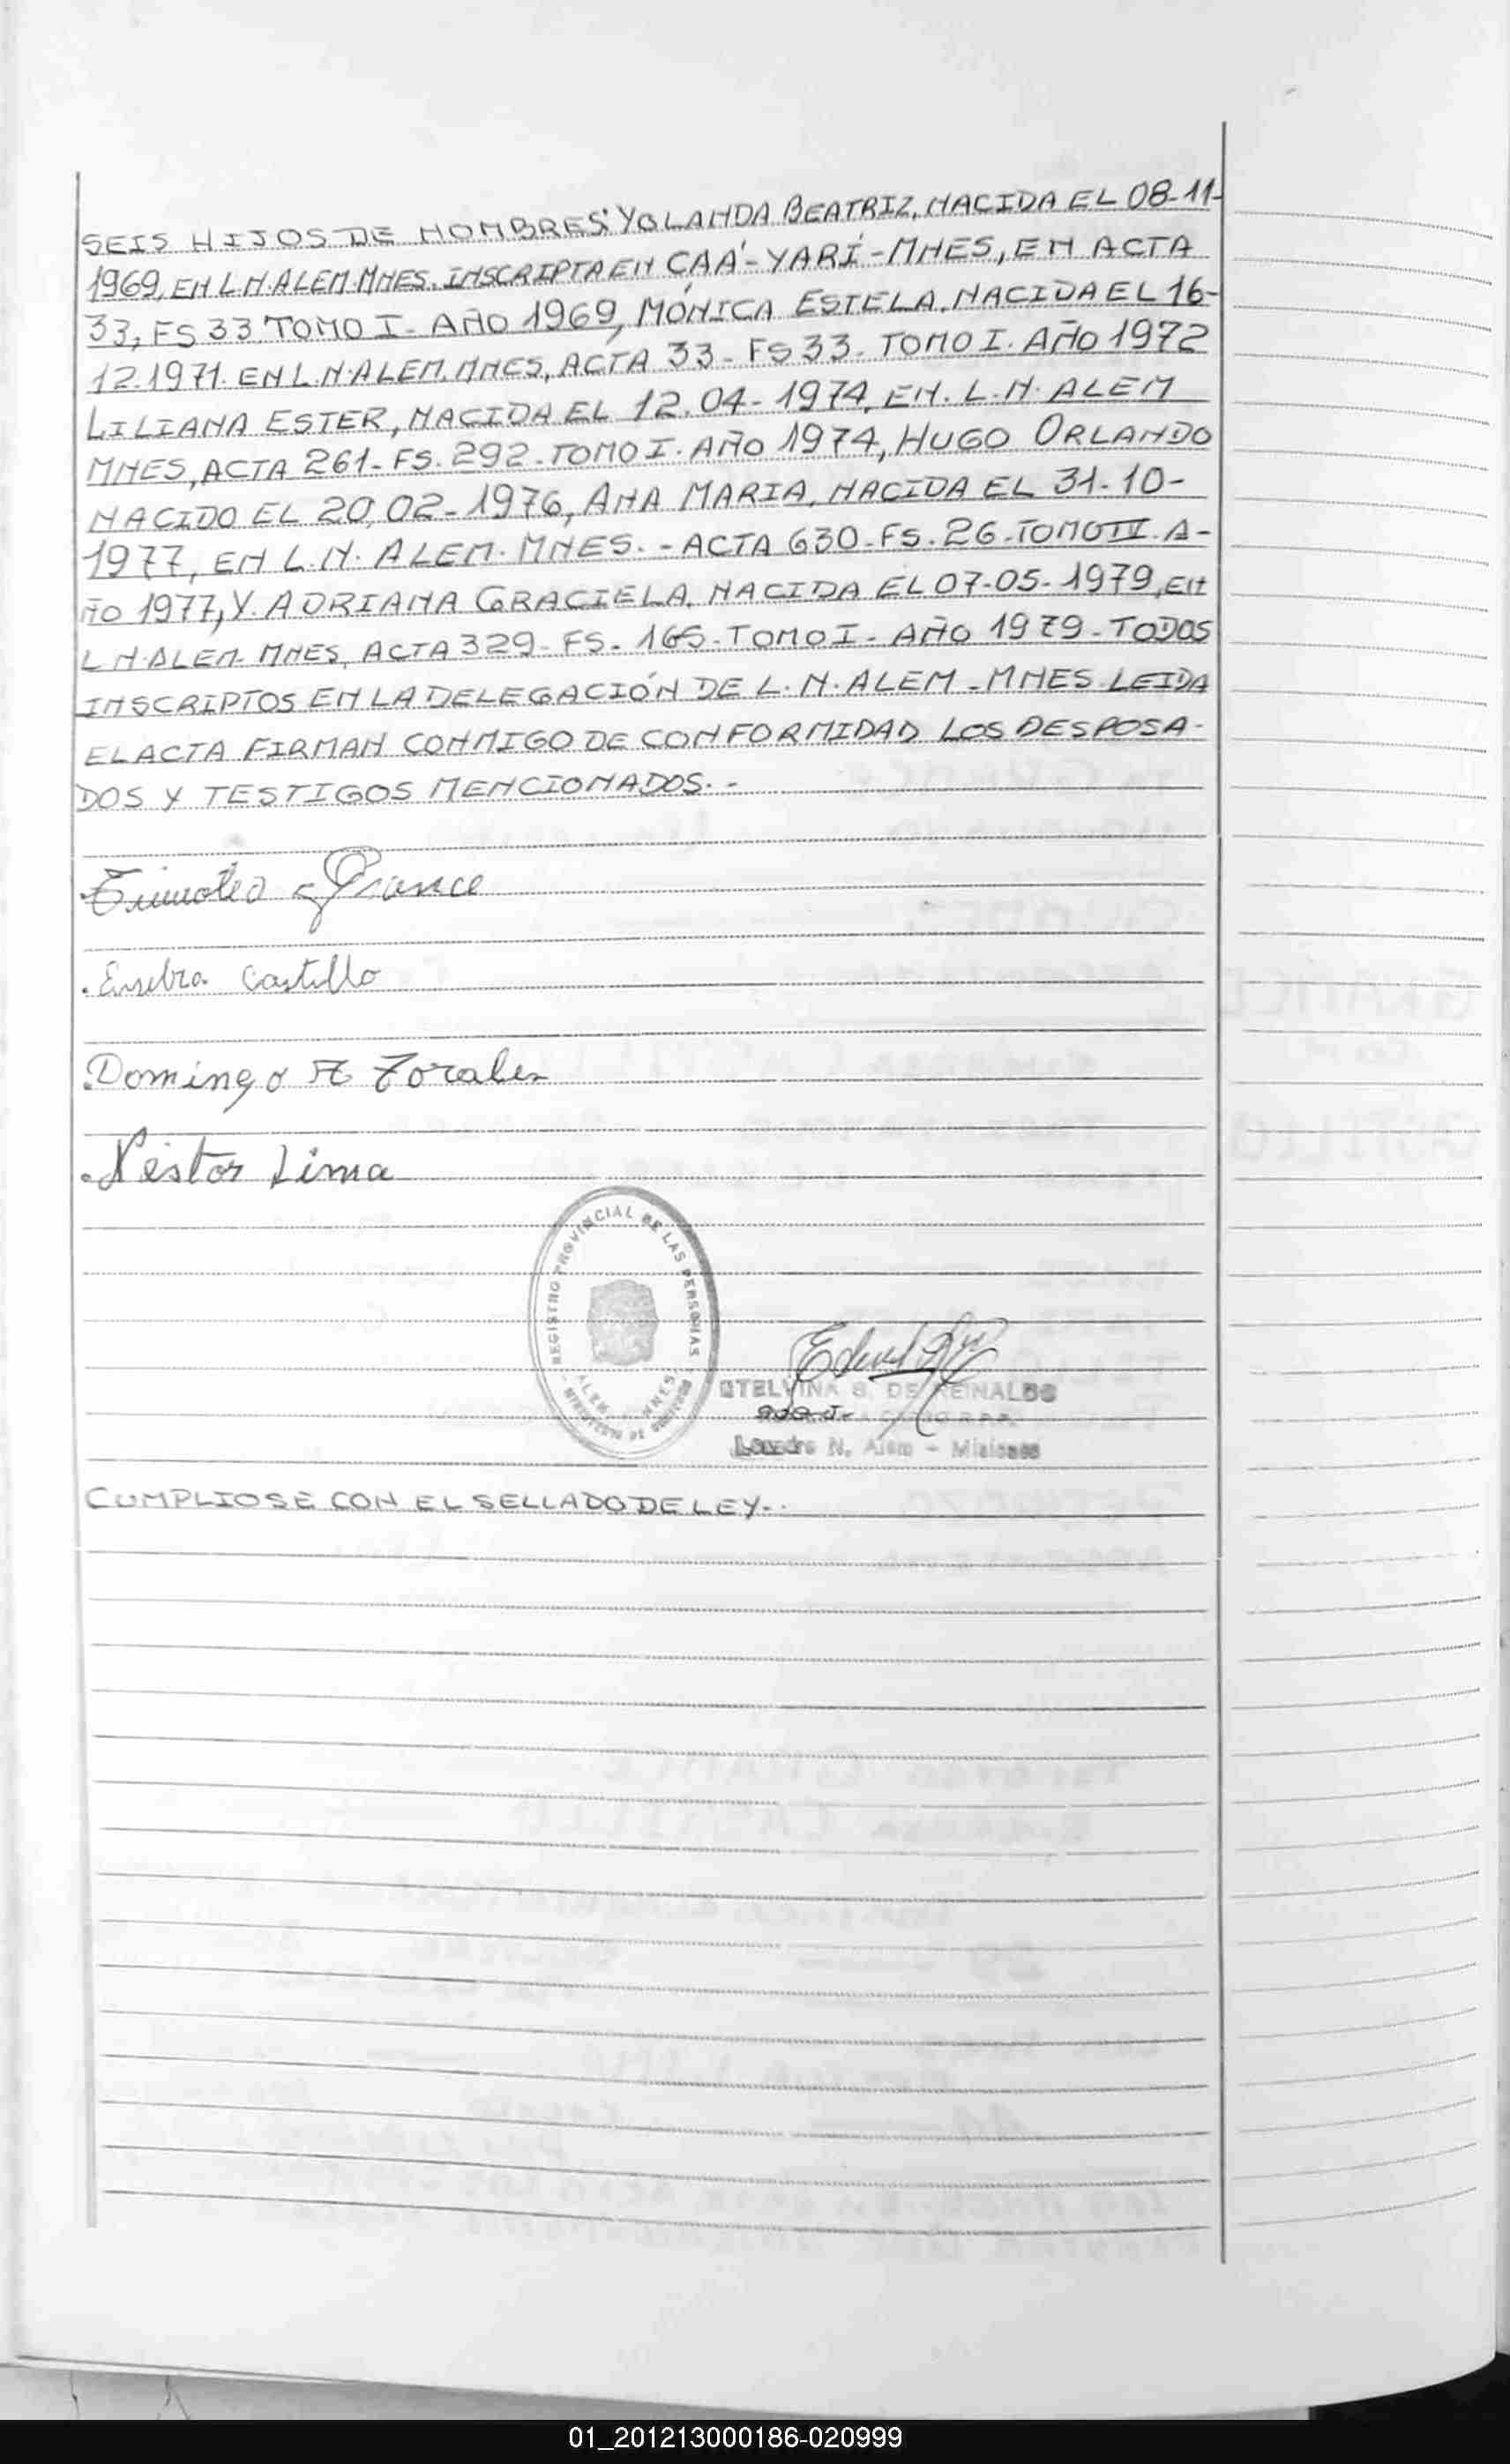 SEIS HIJOS DE NOMBRES: YOLANDA BEATRIZ, NACIDA EL 08-11-
1969, EN L.N. ALEM-MNES. INSCRIPTA EN CAÁ-YARÍ-MNES, EN ACTA
33, FS 33 TOMO I- AÑO 1969, MÓNICA ESTELA, NACIDA EL 16-
12.1971. EN L.N. ALEM. MNES, ACTA 33- FS 33- TOMO I. AÑO 1972
LILIANA ESTER, NACIDA EL 12.04-1974, EN. L.N. ALEM
MNES, ACTA 261-FS. 292-TOMO I. AÑO 1974, HUGO ORLANDO
NACIDO EL 20,02-1976, ANA MARIA, NACIDA EL 31-10-
1977, EN L.N. ALEM. MNES.-ACTA 630-FS. 26-TOMO IV. A-
ÑO 1977, Y. ADRIANA GRACIELA. NACIDA EL 07-05-1979, EN
L N. ALEM- MNES, ACTA 329- FS- 165-TOMO I- AÑO 1979-TODOS
INSCRIPTOS EN LA DELEGACIÓN DE L.N. ALEM-MNES. LEIDA
EL ACTA FIRMAN CONMIGO DE CONFORMIDAD LOS DESPOSA-
DOS Y TESTIGOS MENCIONADOS.-
Timoteo Grance
Eusebia Castillo
Domingo A Zorales
Nestor Lima
REGISTRO PROVINCIAL DE LAS PERSONAS
ALEM - MNES
ETELVINA S. DE REINALDO
Leandro N. Alem - Misiones
CUMPLIOSE CON EL SELLADO DE LEY-.
01_201213000186-020999